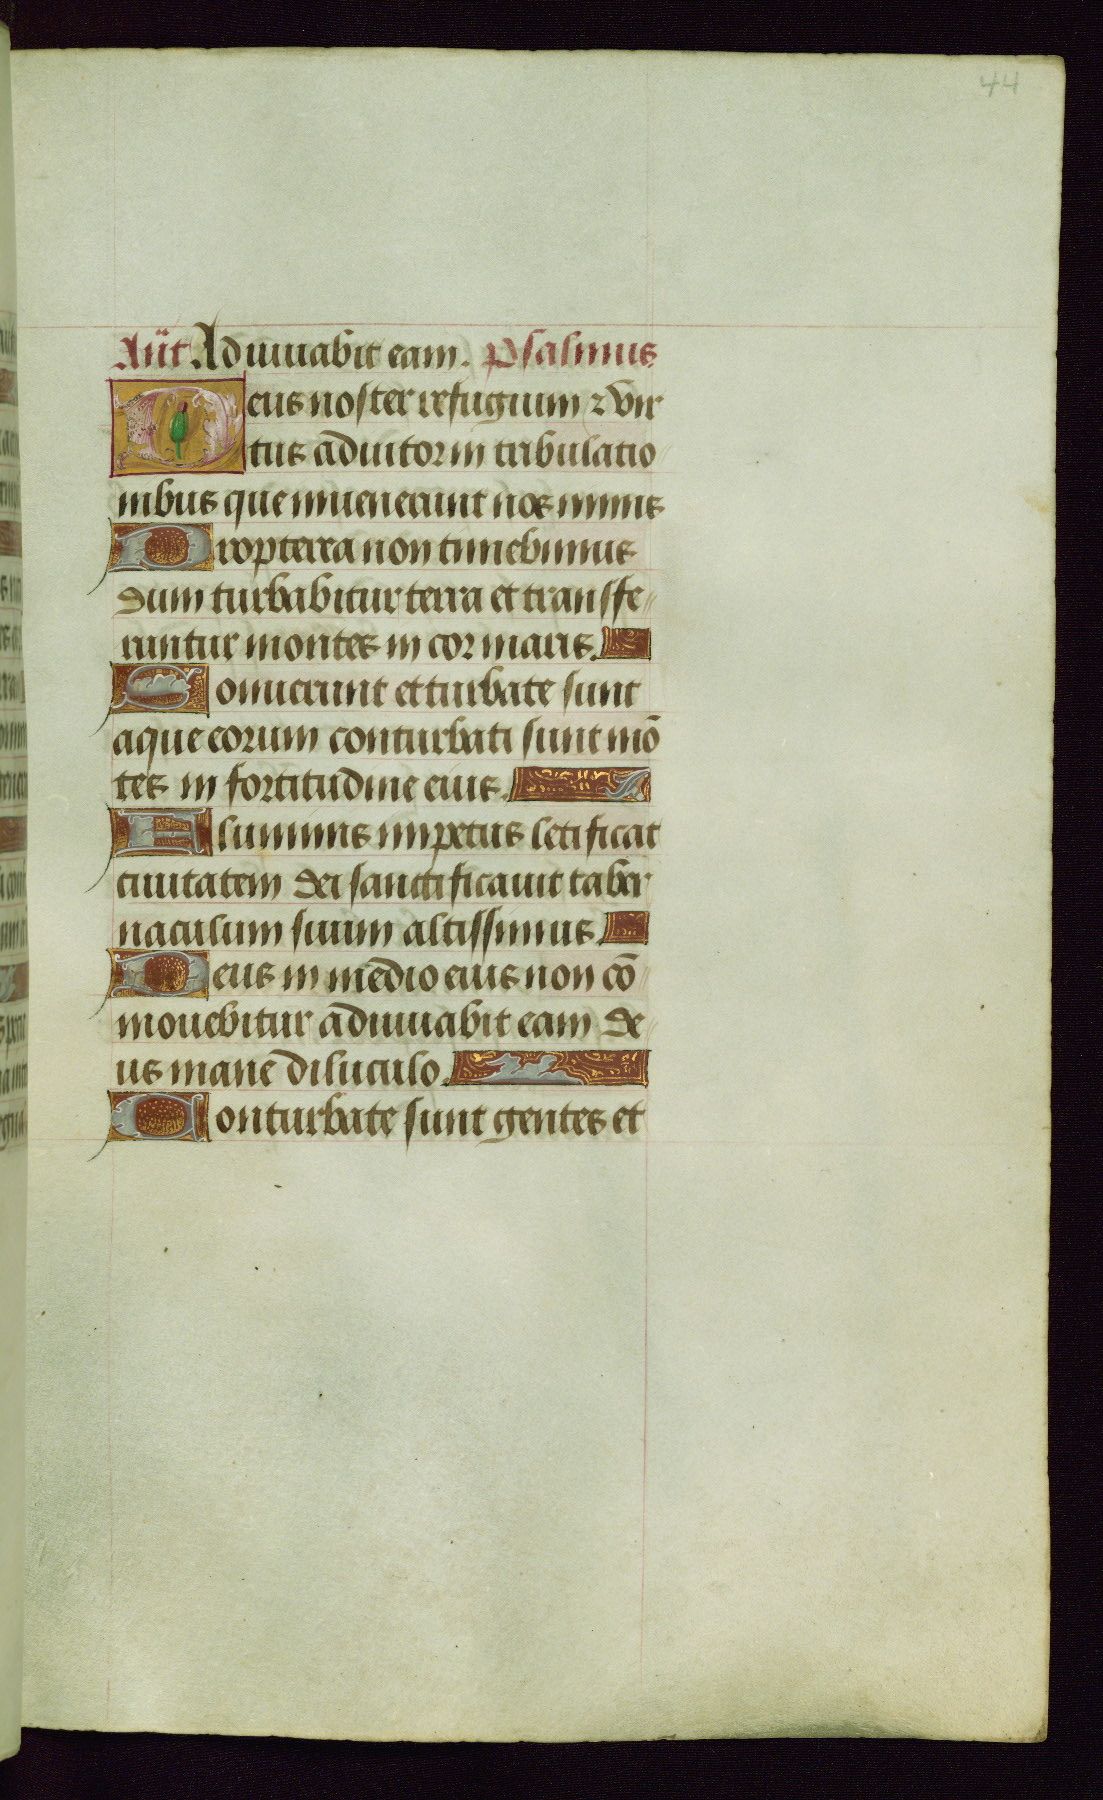 44
Añt Adiuuabit eam. Psalmus
Deus noster refugium ⁊ vir
tus adiutor in tribulatio
nibus que inuenerunt nos nimis
Propterea non timebimus
dum turbabitur terra et transffe
runtur montes in cor maris.
Sonuerunt et turbate sunt
aque eorum conturbati sunt mō
tes in fortitudine eius.
Fluminis impetus letificat
ciuitatem dei sanctificauit taber
naculum suum altissimus.
Deus in medio eius non cō
mouebitur adiuuabit eam de
us mane diluculo.
Conturbate sunt gentes et